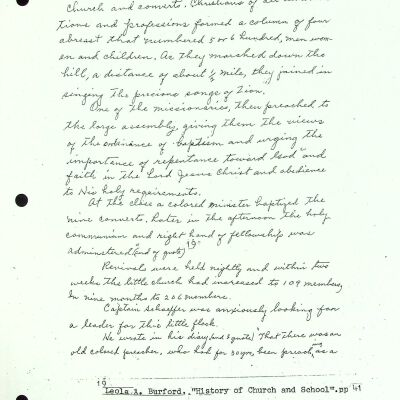 church and converts. Christians of all
tions and professions formed a column of four
abreast that numbered 5 or 6 hundred, men wom-
en and children. As they marched down the
hill, a distance of about ½ mile, they joined in
singing the precious songs of Zion."
"One of the missionaries, then preached to
the large assembly, giving them the views
of the ordinance of baptism and urging the
"importance of repentance toward God" and
faith in the Lord Jesus Christ and obedience
to His holy requirements.
At the close a colored minister baptized the
nine converts. Later in the afternoon the holy
communion and right hand of fellowship was
administered" (end of quote) 19
Revivals were held nightly and within two
weeks the little church had increased to 109 members,
In nine months to 206 members.
Captain Schaeffer was anxiously looking for
a leader for this little flock.
He wrote in his diary "That there was an
old colored preacher, who had for 30 yrs, been preach, as a
19
Leola A. Burford, "History of Church and School". pp 41